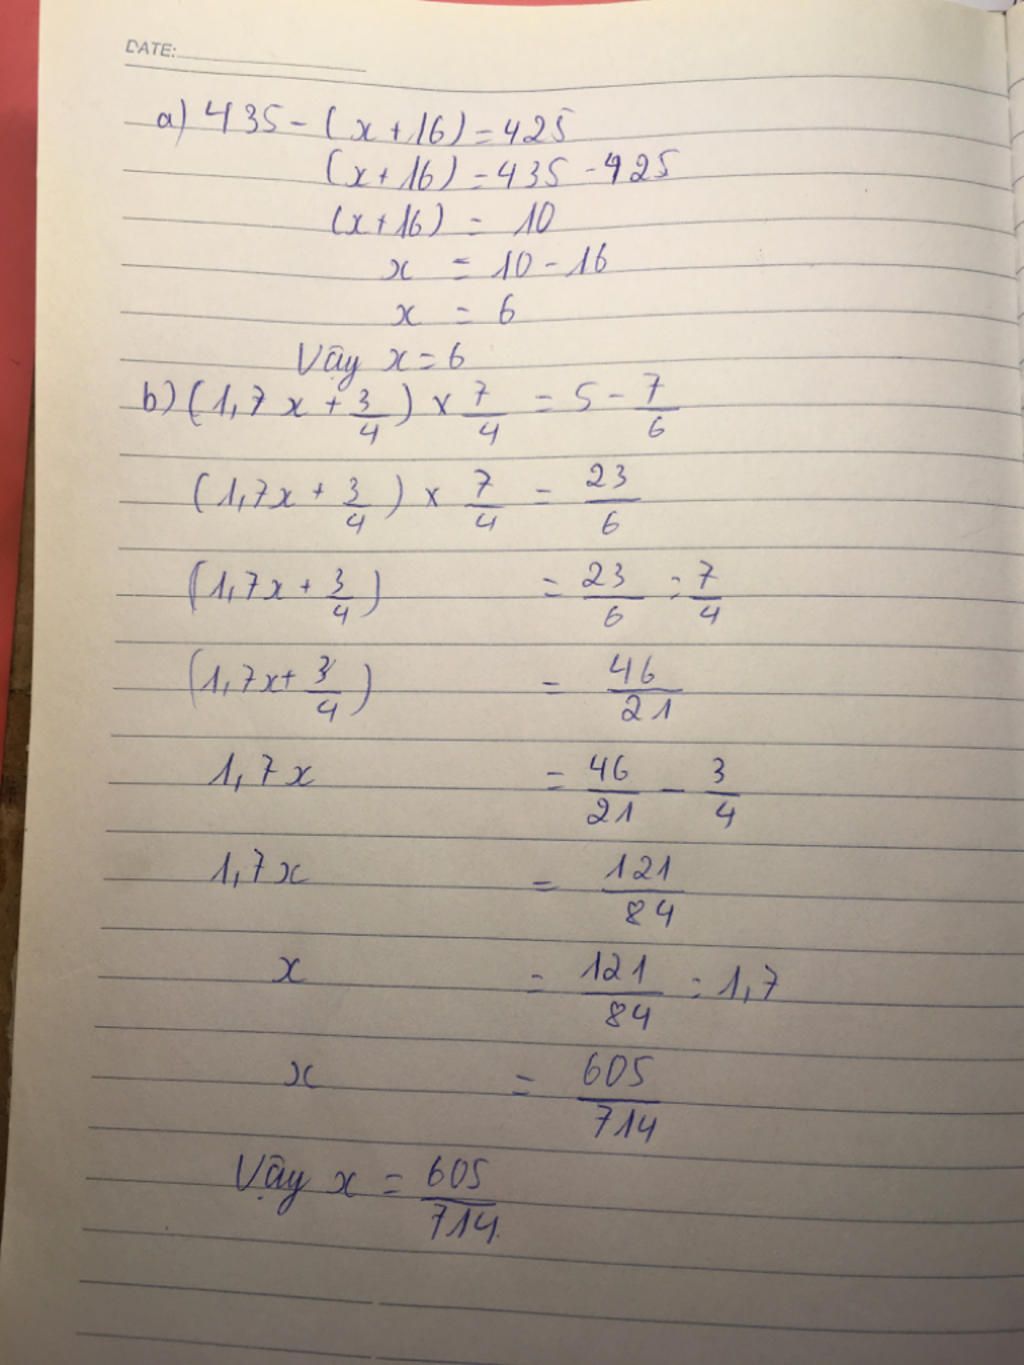 DATE:
a) 435 - (x + 16) = 425
(x + 16) = 435 - 425
(x + 16) = 10
x = 10 - 16
x = 6
Vậy x = 6
b) (1,7x + 3/4) x 7/4 = 5 - 7/6
(1,7x + 3/4) x 7/4 = 23/6
(1,7x + 3/4) = 23/6 : 7/4
(1,7x + 3/4) = 46/21
1,7x = 46/21 - 3/4
1,7x = 121/84
x = 121/84 : 1,7
x = 605/714
Vậy x = 605/714